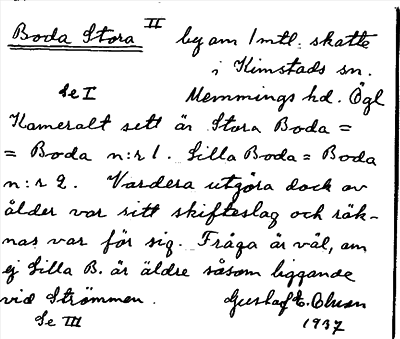 Boda Stora II by om 1 mtl. skatte
i Kimstads sn.
Se I Memmings hd. Ögl
Kameralt sett är Stora Boda =
= Boda n:r 1. Lilla Boda = Boda
n:r 2. Vardera utgöra dock av
ålder var sitt skifteslag och räk-
nas var för sig. Fråga är väl, om
ej Lilla B. är äldre såsom liggande
vid Strömmen. Gustaf E. Olsson
Se III 1937